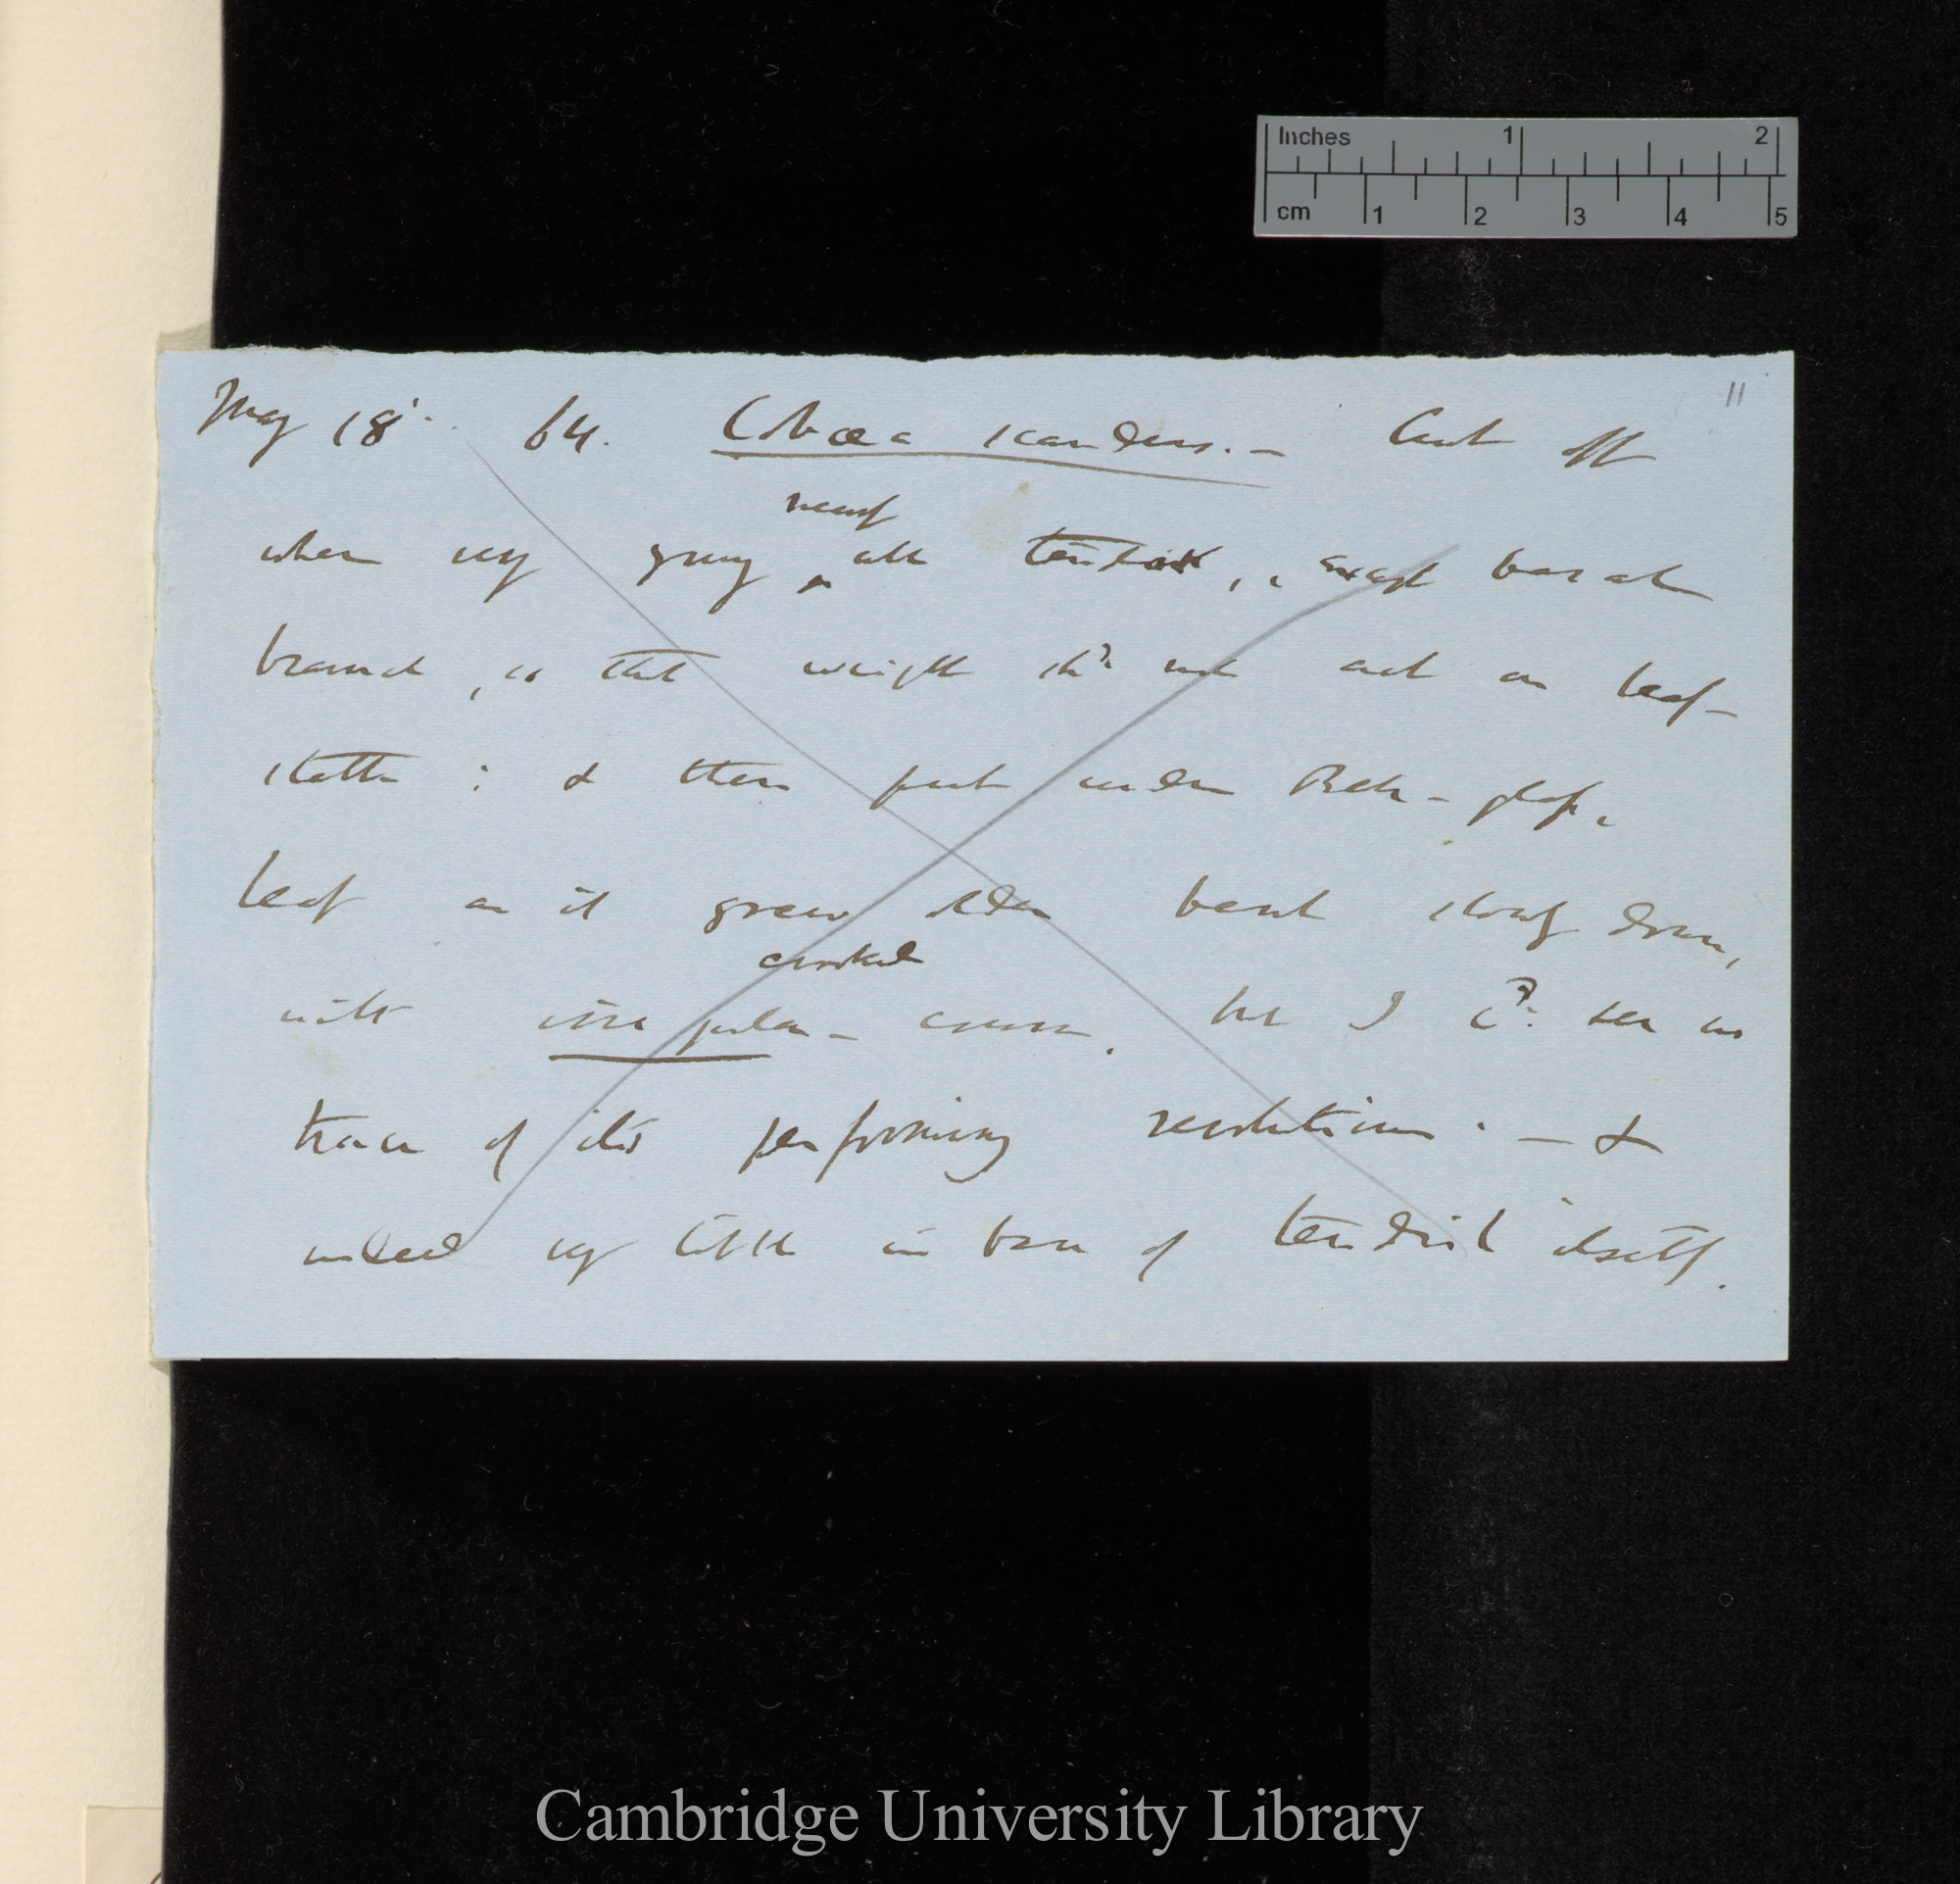 Inches 1 2
cm 1 2 3 4 5
11
May 18. 64. Cobæa scandens. — Cut off
nearly
when very young ^ all tendril, except basal
branch, so that weight shd. not act on leaf-
stalk : & then put under Bell-glass.
Leaf as it grew older bent slowly down,
crooked
with irregular — course. but I cd. see no
trace of its performing revolutions. — &
indeed very little in base of tendril itself.
Cambridge University Library